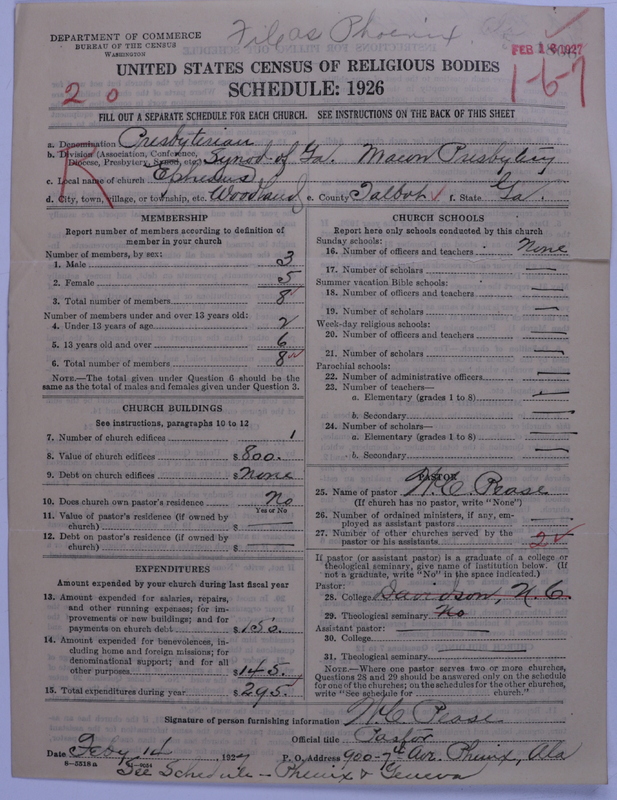 File as Phoenix
DEPARTMENT OF COMMERCE
BUREAU OF THE CENSUS
WASHINGTON
FEB 18 1927
1-6-7
UNITED STATES CENSUS OF RELIGIOUS BODIES
SCHEDULE: 1926
2 0
FILL OUT A SEPARATE SCHEDULE FOR EACH CHURCH. SEE INSTRUCTIONS ON THE BACK OF THIS SHEET
a. Denomination Presbyterian
b. Division (Association, Conference, Diocese, Presbytery, Synod, etc.) Synod of Ga. Macon Presbytery
c. Local name of church Ephesus
d. City, town, village, or township, etc. Woodland e. County Talbot f. State Ga.
MEMBERSHIP
Report number of members according to definition of
member in your church
Number of members, by sex:
1. Male 3
2. Female 5
3. Total number of members 8
Number of members under and over 13 years old:
4. Under 13 years of age 2
5. 13 years old and over 6
6. Total number of members 8
NOTE.—The total given under Question 6 should be
same as the total of males and females given under Question 3.
CHURCH BUILDINGS
See instructions, paragraphs 10 to 12
7. Number of church edifices 1
8. Value of church edifices $ 800.
9. Debt on church edifices $ None
10. Does church own pastor's residence No
Yes or No
11. Value of pastor's residence (if owned by
church) $ —
12. Debt on pastor's residence (if owned by
church) $ —
EXPENDITURES
Amount expended by your church during last fiscal year
13. Amount expended for salaries, repairs,
and other running expenses; for im-
provements or new buildings; and for
payments on church debt $ 150.
14. Amount expended for benevolences, in-
cluding home and foreign missions; for
denominational support; and for all
other purposes $ 145.
15. Total expenditures during year $ 295.
CHURCH SCHOOLS
Report here only schools conducted by this church
Sunday schools:
16. Number of officers and teachers None
17. Number of scholars —
Summer vacation Bible schools:
18. Number of officers and teachers —
19. Number of scholars —
Week-day religious schools:
20. Number of officers and teachers —
21. Number of scholars —
Parochial schools:
22. Number of administrative officers —
23. Number of teachers—
a. Elementary (grades 1 to 8) —
b. Secondary —
24. Number of scholars—
a. Elementary (grades 1 to 8) —
b. Secondary —
PASTOR
25. Name of pastor W. C. Pease
(If church has no pastor, write "None")
26. Number of ordained ministers, if any, em-
ployed as assistant pastors —
27. Number of other churches served by the
pastor or his assistants 2
If pastor (or assistant pastor) is a graduate of a college or
theological seminary, give name of institution below. (If
not a graduate, write "No" in the space indicated.)
Pastor:
28. College Davidson, N. C.
29. Theological seminary No
Assistant pastor: —
30. College —
31. Theological seminary —
NOTE.—Where one pastor serves two or more churches,
Questions 28 and 29 should be answered only on the schedule
for one of the churches; on the schedules for the other churches,
write "See schedule for church."
Signature of person furnishing information W. C. Pease
Official title Pastor
Date Feby 14 1927 P. O. Address 900-7th Ave. Phenix, Ala
8-5318 a
See Schedule - Phenix & Geneva